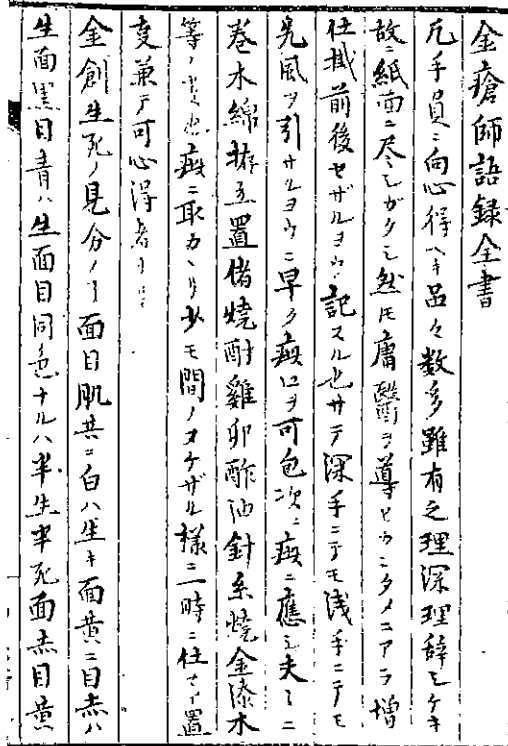 金瘡師語録全書
凡手員ニ向心得ヘキ品々数多雖有之理深理辞シケキ
故ニ紙面ニ尽シガタシ然𪜈庸醫ヲ導ヒカンタメニアラ増
仕掛前後セザルヨウニ記スル也サテ深手ニテモ浅手ニテモ
先風ヲ引サルヨウニ早ク疵口ヲ可包次ニ疵ニ應シ夫々ニ
巻木綿拵立置偖焼酎雞卵酢油針糸焼金漆木
等ノ疵ニ取カヽリ少モ間ノヌケザル様ニ一時ニ仕置
変兼テ可心得者也
金創生死ノ見分ノ事面目肌共ニ白ハ生キ面黄ニ目赤ハ
生面黒目青ハ生面目同色ナルハ半生半死面赤目黄